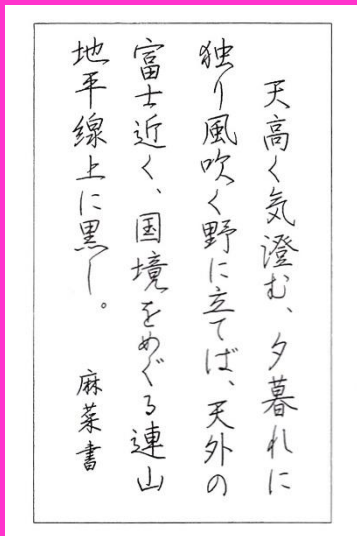 天高く気澄む、夕暮れに
独り風吹く野に立てば、天外の
富士近く、国境をめぐる連山
地平線上に黒し。
麻菜書